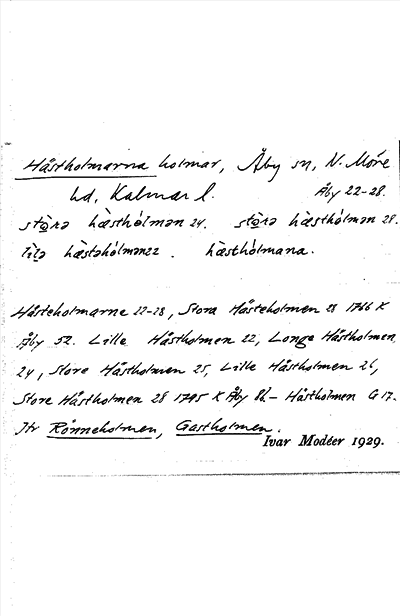 Hästholmarna holmar, Åby sn, N. Möre
hd, Kalmar l. Åby 22-28.
sto̲ra hästhólmən 24. sto̲ra hästhólmən 28.
lila hästəhólmən 22. hästhólmana.
Hästeholmarne 22-28, Stora Hästeholmen 28 1766 K
Åby 52. Lille Hästholmen 22, Longe Hästholmen
24, Store Hästholmen 25, Lille Hästholmen 26,
Store Hästholmen 28 1795 K Åby 86 - Hästholmen G 17.
Jfr Rönneholmen, Gastholmen.
Ivar Modéer 1929.